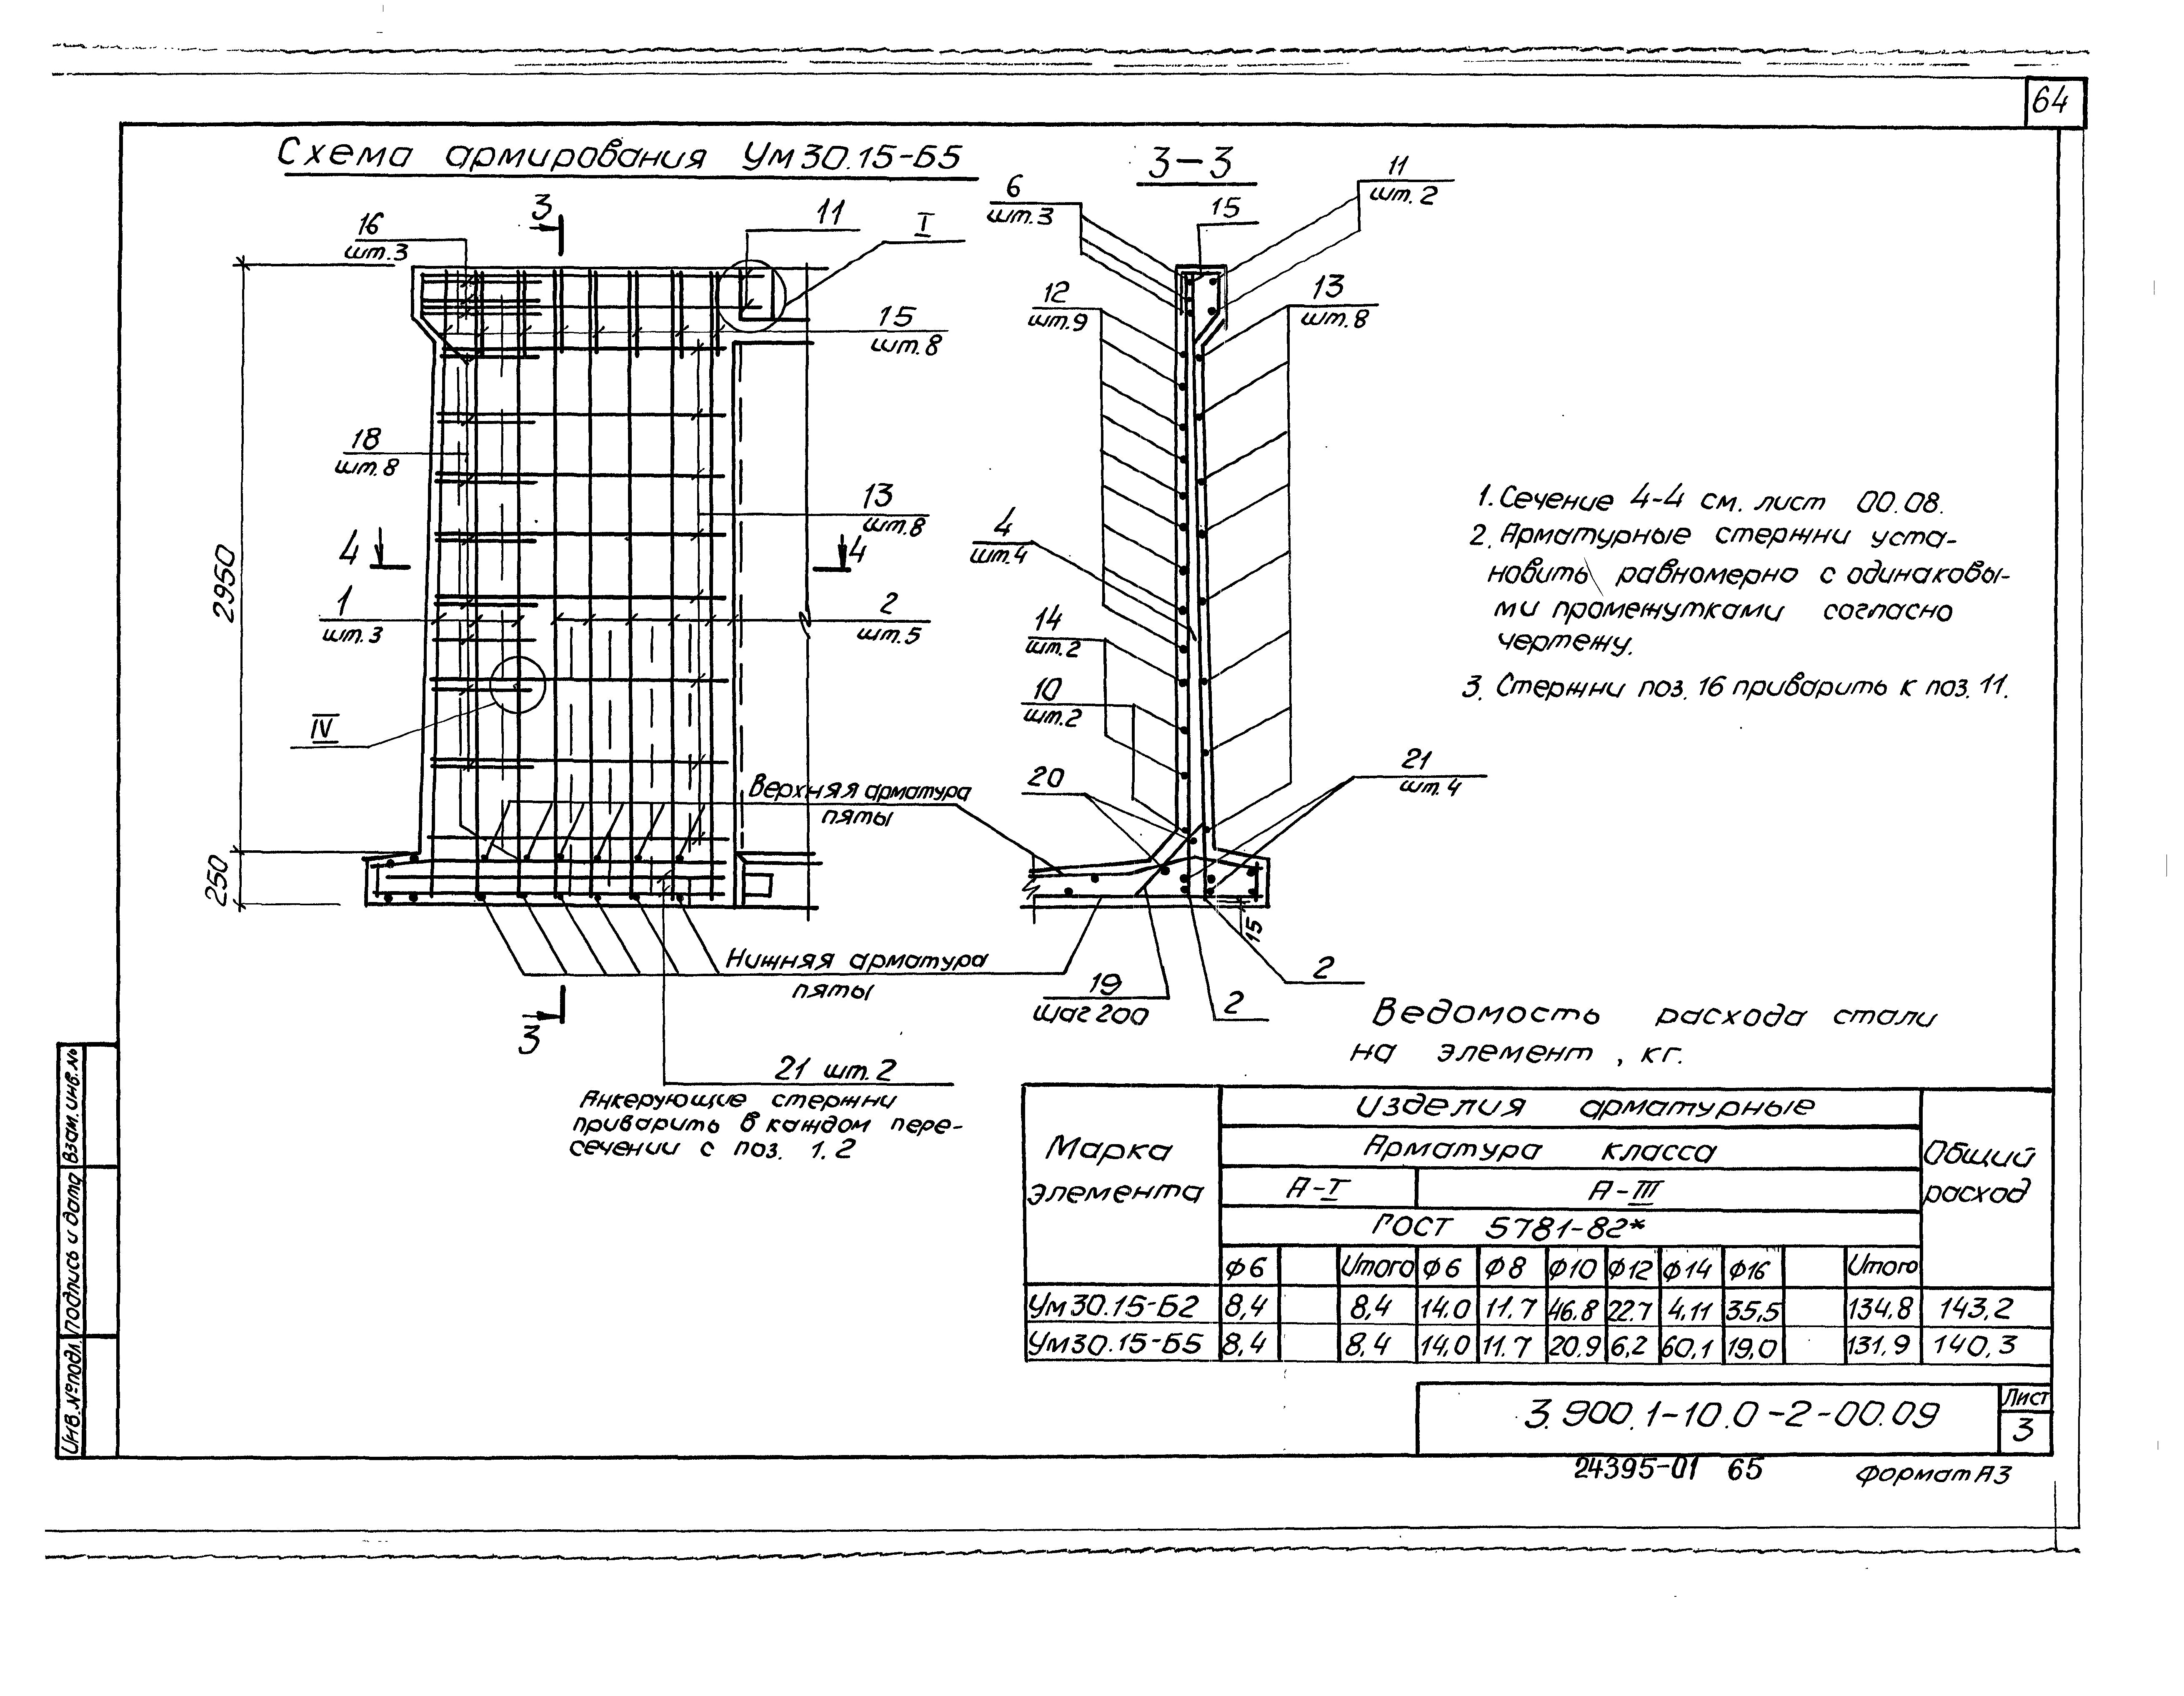 64
Схема армирования Ум30.15-Б5
3-3
3
16
шт.3
11
I
15
шт.8
18
шт.8
13
шт.8
4
4
2950
1
шт.3
2
шт.5
IV
250
Верхняя арматура
пяты
Нижняя арматура
пяты
3
21 шт.2
Анкерующие стержни
приварить в каждом пере-
сечении с поз. 1.2
6
шт.3
15
11
шт.2
12
шт.9
13
шт.8
4
шт.4
14
шт.2
10
шт.2
20
21
шт.4
15
19
шаг 200
2
2
1. Сечение 4-4 см. лист 00.08.
2. Арматурные стержни уста-
новить равномерно с одинаковы-
ми промежутками согласно
чертежу.
3. Стержни поз. 16 приварить к поз. 11.
Ведомость расхода стали
на элемент, кг.
Марка элемента
Изделия арматурные
Общий расход
Арматура класса
А-I А-III
ГОСТ 5781-82*
ф6 Итого ф6 ф8 ф10 ф12 ф14 ф16 Итого
Ум30.15-Б2 8,4 8,4 14.0 11.7 46.8 22.7 4,11 35,5 134,8 143,2
Ум30.15-Б5 8,4 8,4 14,0 11.7 20.9 6,2 60,1 19,0 131,9 140,3
3.900.1-10.0-2-00.09
Лист
3
24395-01 65
Формат А3
Инв.№подл. Подпись и дата Взам.инв.№